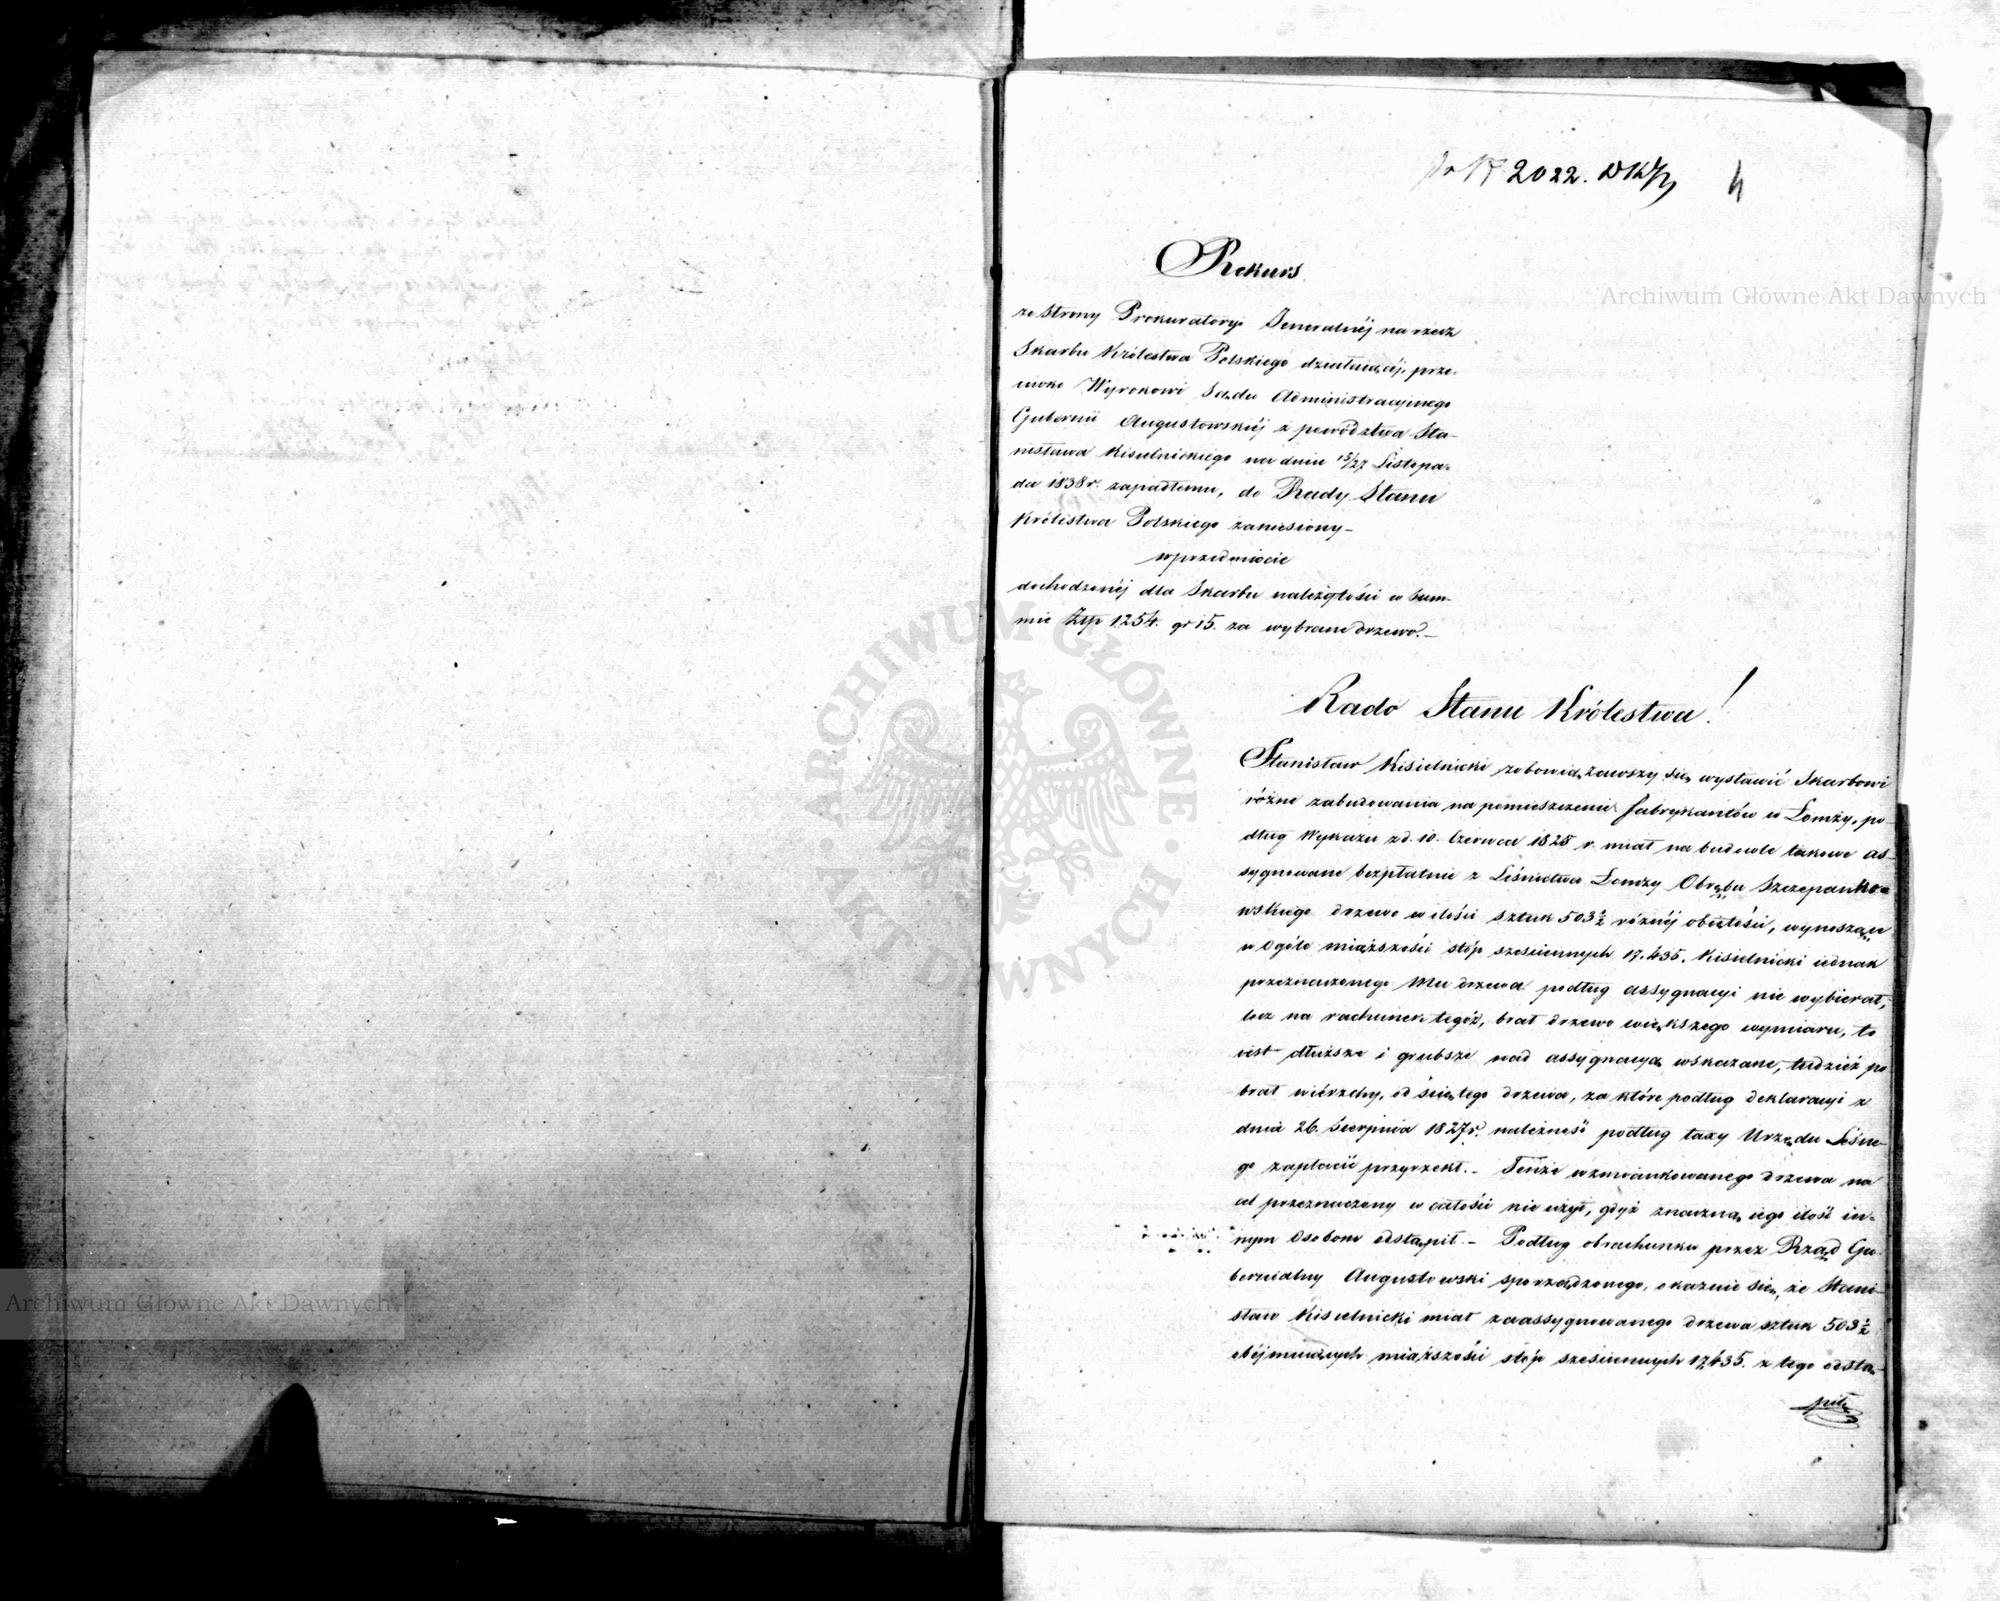 2022.
4
Rekurs
ze strony Prokuratoryi Jeneralnéj na rzecz
Skarbu Królestwa Polskiego działaiącéj, prze-
ciwko Wyrokowi Sądu Administracyjnego
Gubernii Augustowskiéj z powództwa Sta-
nisława Kisielnickiego na dniu 15/27 Listopa-
da 1838 r. zapadłemu, do Rady Stanu
Królestwa Polskiego zaniesiony_
w przedmiocie
dochodzonéj dla Skarbu należytości w sum-
mie Złp 1254. gr 15. za wybrane drzewo._
Rado Stanu Królestwa!
Stanisław Kisielnicki zobowiązawszy się wystawić Skarbowi
różne zabudowania na pomieszczenie fabrykantów w Łomży, po-
dług Wykazu z d. 10. Czerwca 1825 r. miał na budowle takowe as-
sygnowane bezpłatnie z Leśnictwa Łomży Obrębu Szczepanko-
wskiego drzewo w ilości sztuk 503½ różnéj objętości, wynoszące
w ogóle miąższości stóp sześciennych 17.435. Kisielnicki iednak
przeznaczonego Mu drzewa podług assygnacyi nie wybierał,
lecz na rachunek tegóż, brał drzewo większego wymiaru, to
iest dłuższe i grubsze nad assygnacyą wskazane, tudzież po-
brał wiérzchy, od ściętego drzewa, za które podług deklaracyi z
dnia 26. Sierpnia 1827 r. należność podług taxy Urzędu Leśne-
go zapłacić przyrzekł._ Tenże wzmiankowanego drzewa na
cel przeznaczony w całości nie użył, gdyż znaczną iego ilość in-
nym Osobom odstąpił._ Podług obrachunku przez Rząd Gu-
bernialny Augustowski sporządzonego, okazuie się, że Stani-
sław Kisielnicki miał zaassygnowanego drzewa sztuk 503½
obéjmuiących miąższości stóp sześciennych 17,435. z tego odstą-
pił
Archiwum Główne Akt Dawnych
Archiwum Główne Akt Dawnych
ARCHIWUM GŁÓWNE AKT DAWNYCH